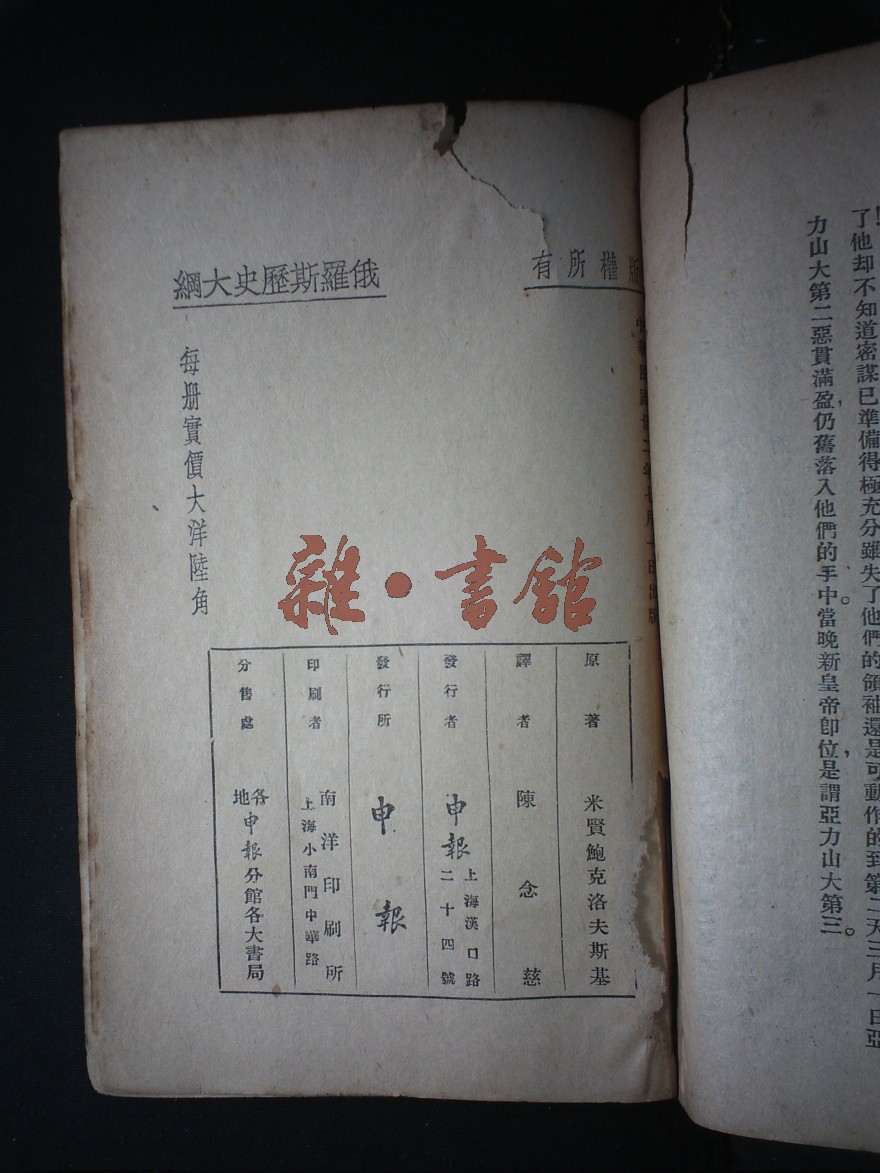 了他却不知道密謀已準備得極充分雖失了他們的領袖還是可動作的到第二天三月一日亞
力山大第二惡貫滿盈,仍舊落入他們的手中。當晚新皇帝卽位,是謂亞力山大第三。
版權所有
中華民國廿二年七月一日出版
俄羅斯歷史大綱
每册實價大洋陸角
雜·書館
原著 米賢鮑克洛夫斯基
譯者 陳念慈
發行者 申報 上海漢口路二十四號
發行所 申報
印刷者 南洋印刷所 上海小南門中華路
分售處 各地申報分館各大書局